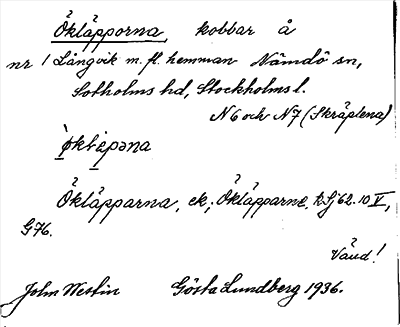 Ökläpporna, kobbar å
nr 1 Långvik m. fl. hemman Nämdö sn,
Sotholms hd, Stockholms l.
N6 och N7 (Skräplena)
Ökläpparna, ek.; Ökläpparne,
G76.
Vänd!
John Westin Gösta Lundberg 1936.